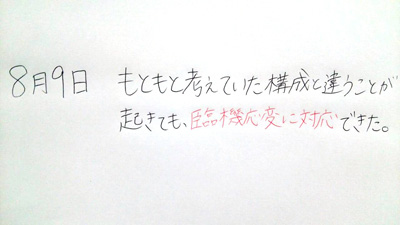 8月9日 もともと考えていた構成と違うことが
起きても、臨機応変に対応できた。